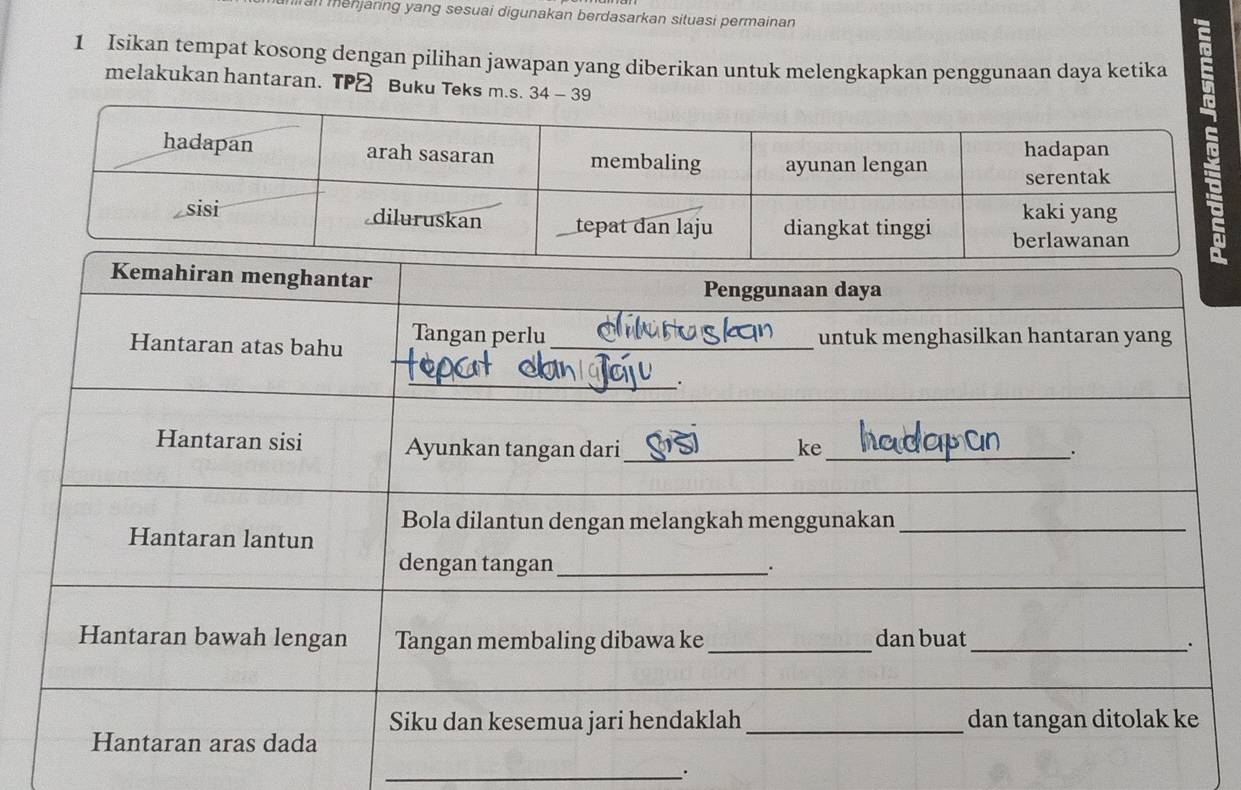 menjaring yang sesuai digunakan berdasarkan situasi permainan
1 Isikan tempat kosong dengan pilihan jawapan yang diberikan untuk melengkapkan penggunaan daya ketika
melakukan hantaran. TP2 Buku Teks m.s. 34 – 39
hadapan
arah sasaran
membaling
ayunan lengan
hadapan
serentak
sisi
diluruskan
tepat dan laju
diangkat tinggi
kaki yang
berlawanan
Kemahiran menghantar
Penggunaan daya
Hantaran atas bahu
Tangan perlu ______ untuk menghasilkan hantaran yang
tepat dan laju.
Hantaran sisi
Ayunkan tangan dari sisi ke hadapan.
Hantaran lantun
Bola dilantun dengan melangkah menggunakan ______
dengan tangan ______.
Hantaran bawah lengan
Tangan membaling dibawa ke ______ dan buat ______.
Hantaran aras dada
Siku dan kesemua jari hendaklah ______ dan tangan ditolak ke
______.
Pendidikan Jasmani